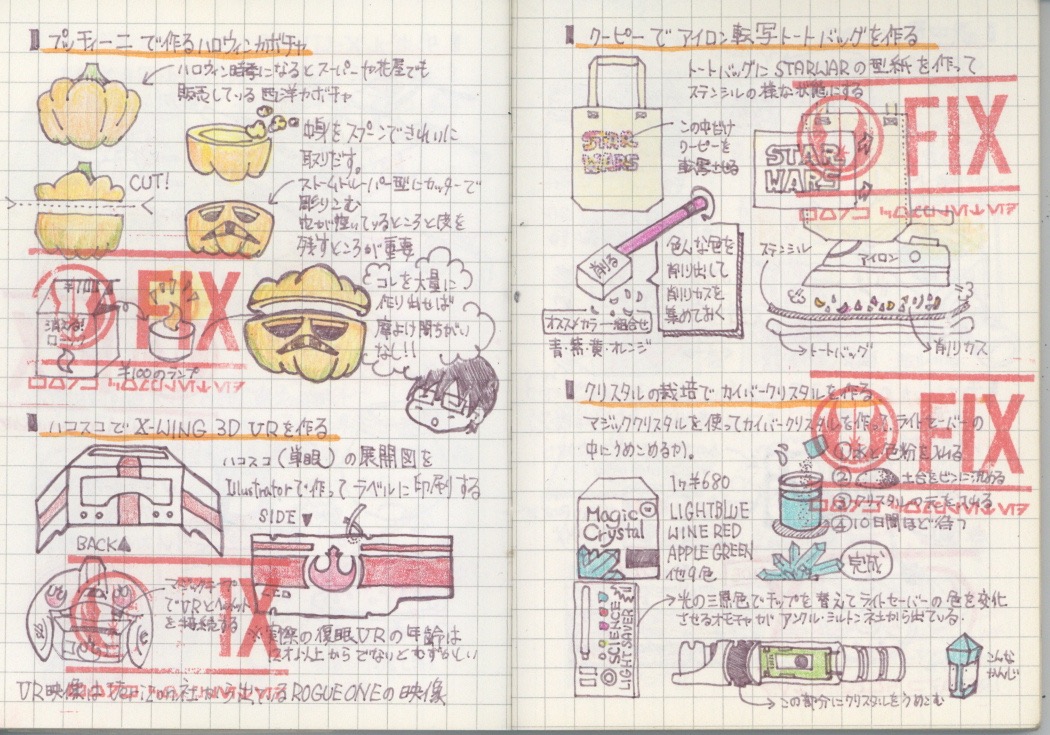 プッチィーニで作るハロウィンカボチャ
ハロウィン時季になるとスーパーや花屋でも
販売している西洋カボチャ
中身をスプーンできれいに
取りだす。
CUT!
ストームトルーパー型にカッターで
彫りこむ
穴が空いているところと皮を
残すところが重要
コレを大量に
作り出せば
魔よけ間違いなし!!
消える!
¥100のランプ
FIX
ハコスコで X-WING 3D VRを作る
ハコスコ(単眼)の展開図を
Illustratorで作ってラベルに印刷する
SIDE▼
BACK▲
マジックテープ
でVRとヘルメット
を接続する
FIX
※実際の復眼VRの年齢は
12才以上からでないとむずかしい
VR映像は 社から出ているROGUE ONEの映像
クーピーでアイロン転写トートバッグを作る
トートバッグにSTARWARの型紙を作って
ステンシルの様な状態にする
STAR
WARS
この中だけ
クーピーを
転写させる
STAR
WARS
FIX
削る
色んな色を
削り出して
削りカスを
集めておく
ステンシル
アイロン
オススメカラー組合せ
青・紫・黄・オレンジ
トートバッグ
削りカス
クリスタルの栽培でカイバークリスタルを作る
マジッククリスタルを使ってカイバークリスタルを作って、ライトセーバーの
中にうめこめるか。
FIX
①水と色粉を入れる
②土台をビンに沈める
③クリスタルの元を入れる
④10日間ほど待つ
1ヶ¥680
LIGHTBLUE
WINE RED
APPLE GREEN
他9色
Magic
Crystal
完成
SCIENCE
LIGHT SAVER
光の三原色でチップを替えてライトセーバーの色を変化
させるオモチャがアンクル・ミルトン社から出ている.
こんな
かんじ
この部分にクリスタルをうめこむ